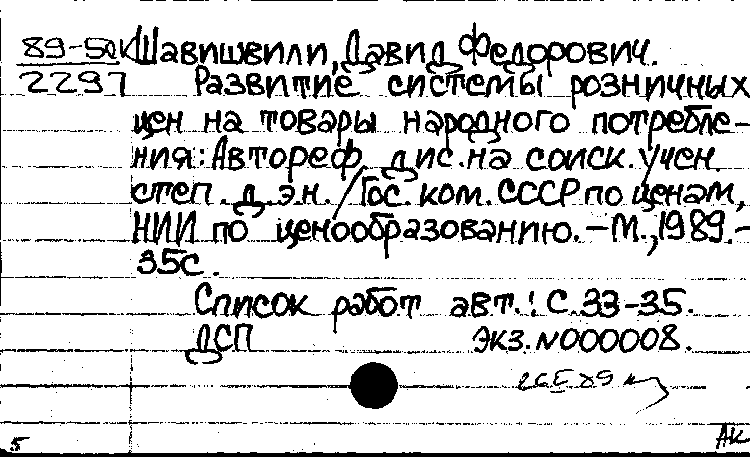 89-50к Шавишвили, Давид Федорович.
2297 Развитие системы розничных
цен на товары народного потребле-
ния: Автореф. дис. на соиск. учен.
степ. д.э.н. / Гос. ком. СССР по ценам,
НИИ по ценообразованию. - М., 1989. -
35с.
Список работ авт.: С. 33-35.
ДСП экз. N000008.
5 АК